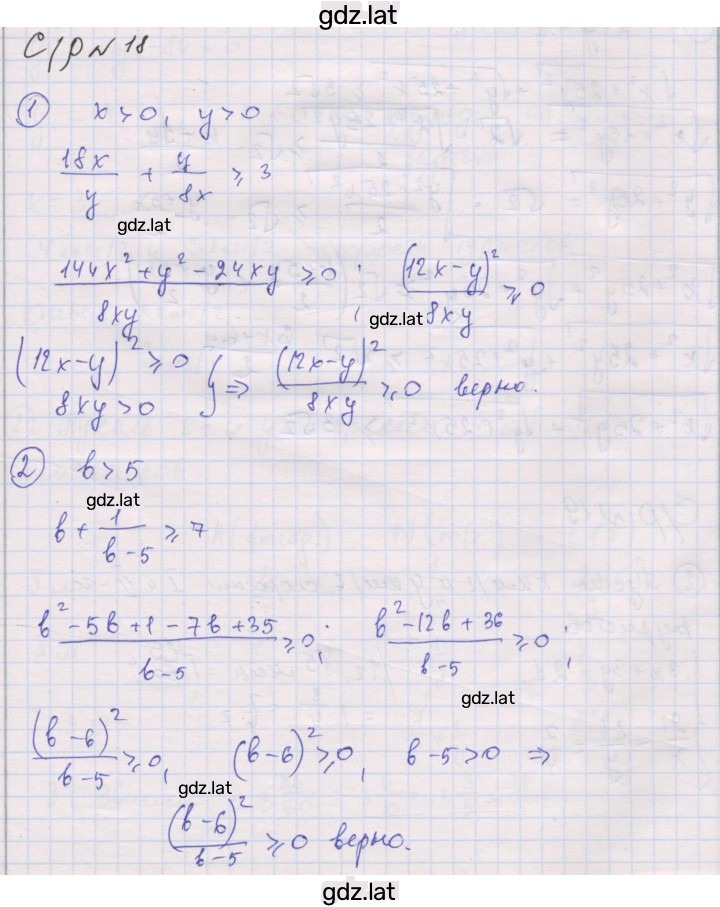 gdz.lat
С/р N 18
① x > 0, y > 0
18x/y + y/8x ⩾ 3
gdz.lat
(144x² + y² − 24xy)/8xy ⩾ 0 ; (12x − y)²/8xy ⩾ 0
gdz.lat
(12x − y)² ⩾ 0
8xy > 0 } ⇒ (12x − y)²/8xy ⩾ 0 верно.
② b > 5
gdz.lat
b + 1/(b − 5) ⩾ 7
(b² − 5b + 1 − 7b + 35)/(b − 5) ⩾ 0; (b² − 12b + 36)/(b − 5) ⩾ 0;
gdz.lat
(b − 6)²/(b − 5) ⩾ 0, (b − 6)² ⩾ 0, b − 5 > 0 ⇒
gdz.lat
(b − 6)²/(b − 5) ⩾ 0 верно.
gdz.lat